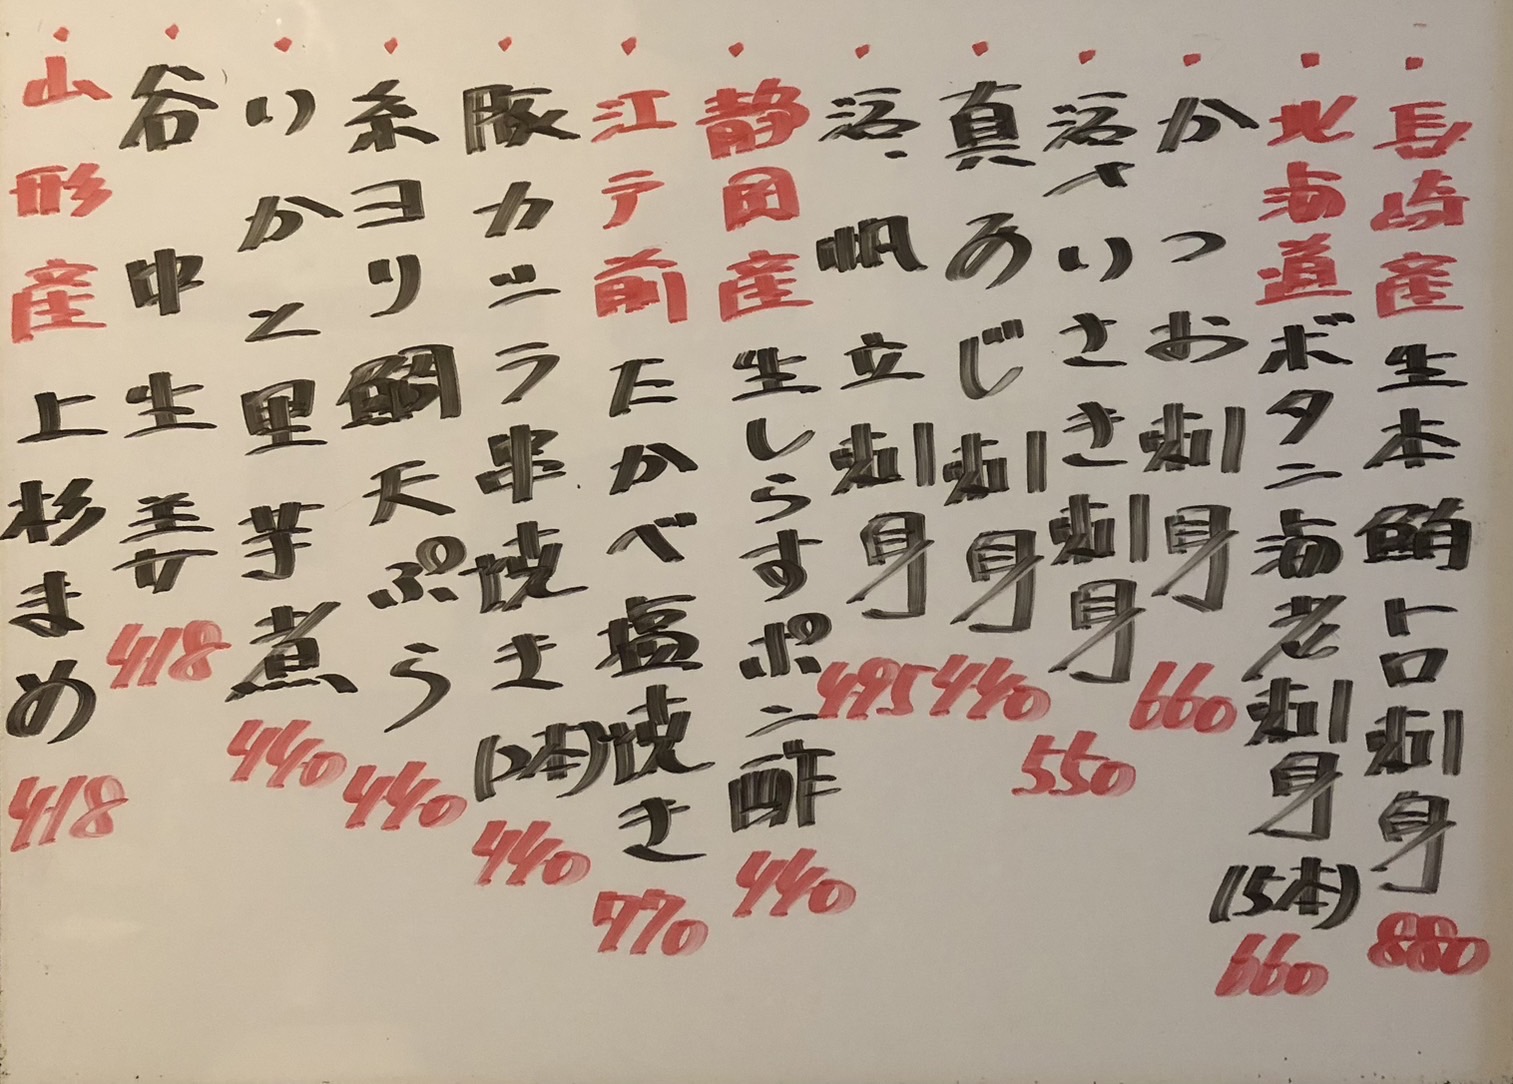 長崎産生本鮪トロ刺身 880
北海道ボタン海老刺身(5本) 660
かつお刺身 660
活〆いさき刺身 550
真あじ刺身 440
活帆立刺身 495
静岡産生しらすポン酢 440
江戸前たかべ塩焼き 770
豚カシラ串焼き(2本) 440
糸ヨリ鯛天ぷら 440
いかと里芋煮 440
谷中生姜 418
山形産上杉まめ 418